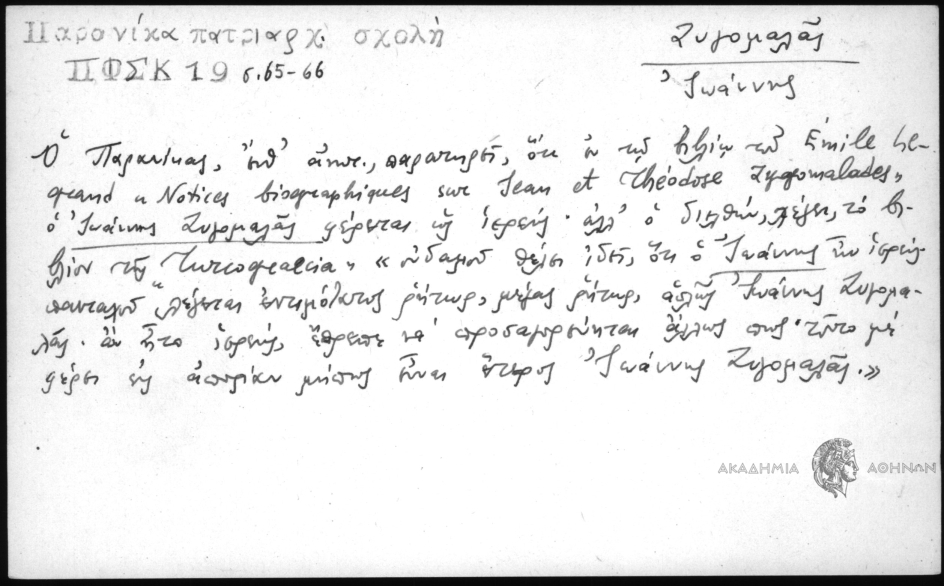 Παρανίκα πατριαρχ. σχολή
ΠΦΣΚ 19 σ. 65-66
Ζυγομαλᾶς
Ἰωάννης
Ὁ Παρανίκας, ἔνθ' ἀνωτ., παρατηρεῖ, ὅτι ἐν τῷ βιβλίῳ τοῦ Émile Le-
grand « Notices biographiques sur Jean et Théodose Zygomalades »
ὁ Ἰωάννης Ζυγομαλᾶς φέρεται ὡς ἱερεύς· ἀλλ' ὁ διελθών, λέγει, τὸ βι-
βλίον τῆς Turcograecia, « οὐδαμοῦ θέλει ἰδεῖ, ὅτι ὁ Ἰωάννης ἦν ἱερεύς·
πανταχοῦ λέγεται ἐντιμότατος ῥήτωρ, μέγας ῥήτωρ, ἁπλῶς Ἰωάννης Ζυγομα-
λᾶς· ἂν ἦτο ἱερεύς, ἔπρεπε νὰ προσαγορεύηται ἄλλως πως· τοῦτο μὲ
φέρει εἰς ἀπορίαν μήπως εἶναι ἕτερος Ἰωάννης Ζυγομαλᾶς.»
ΑΚΑΔΗΜΙΑ ΑΘΗΝΩΝ